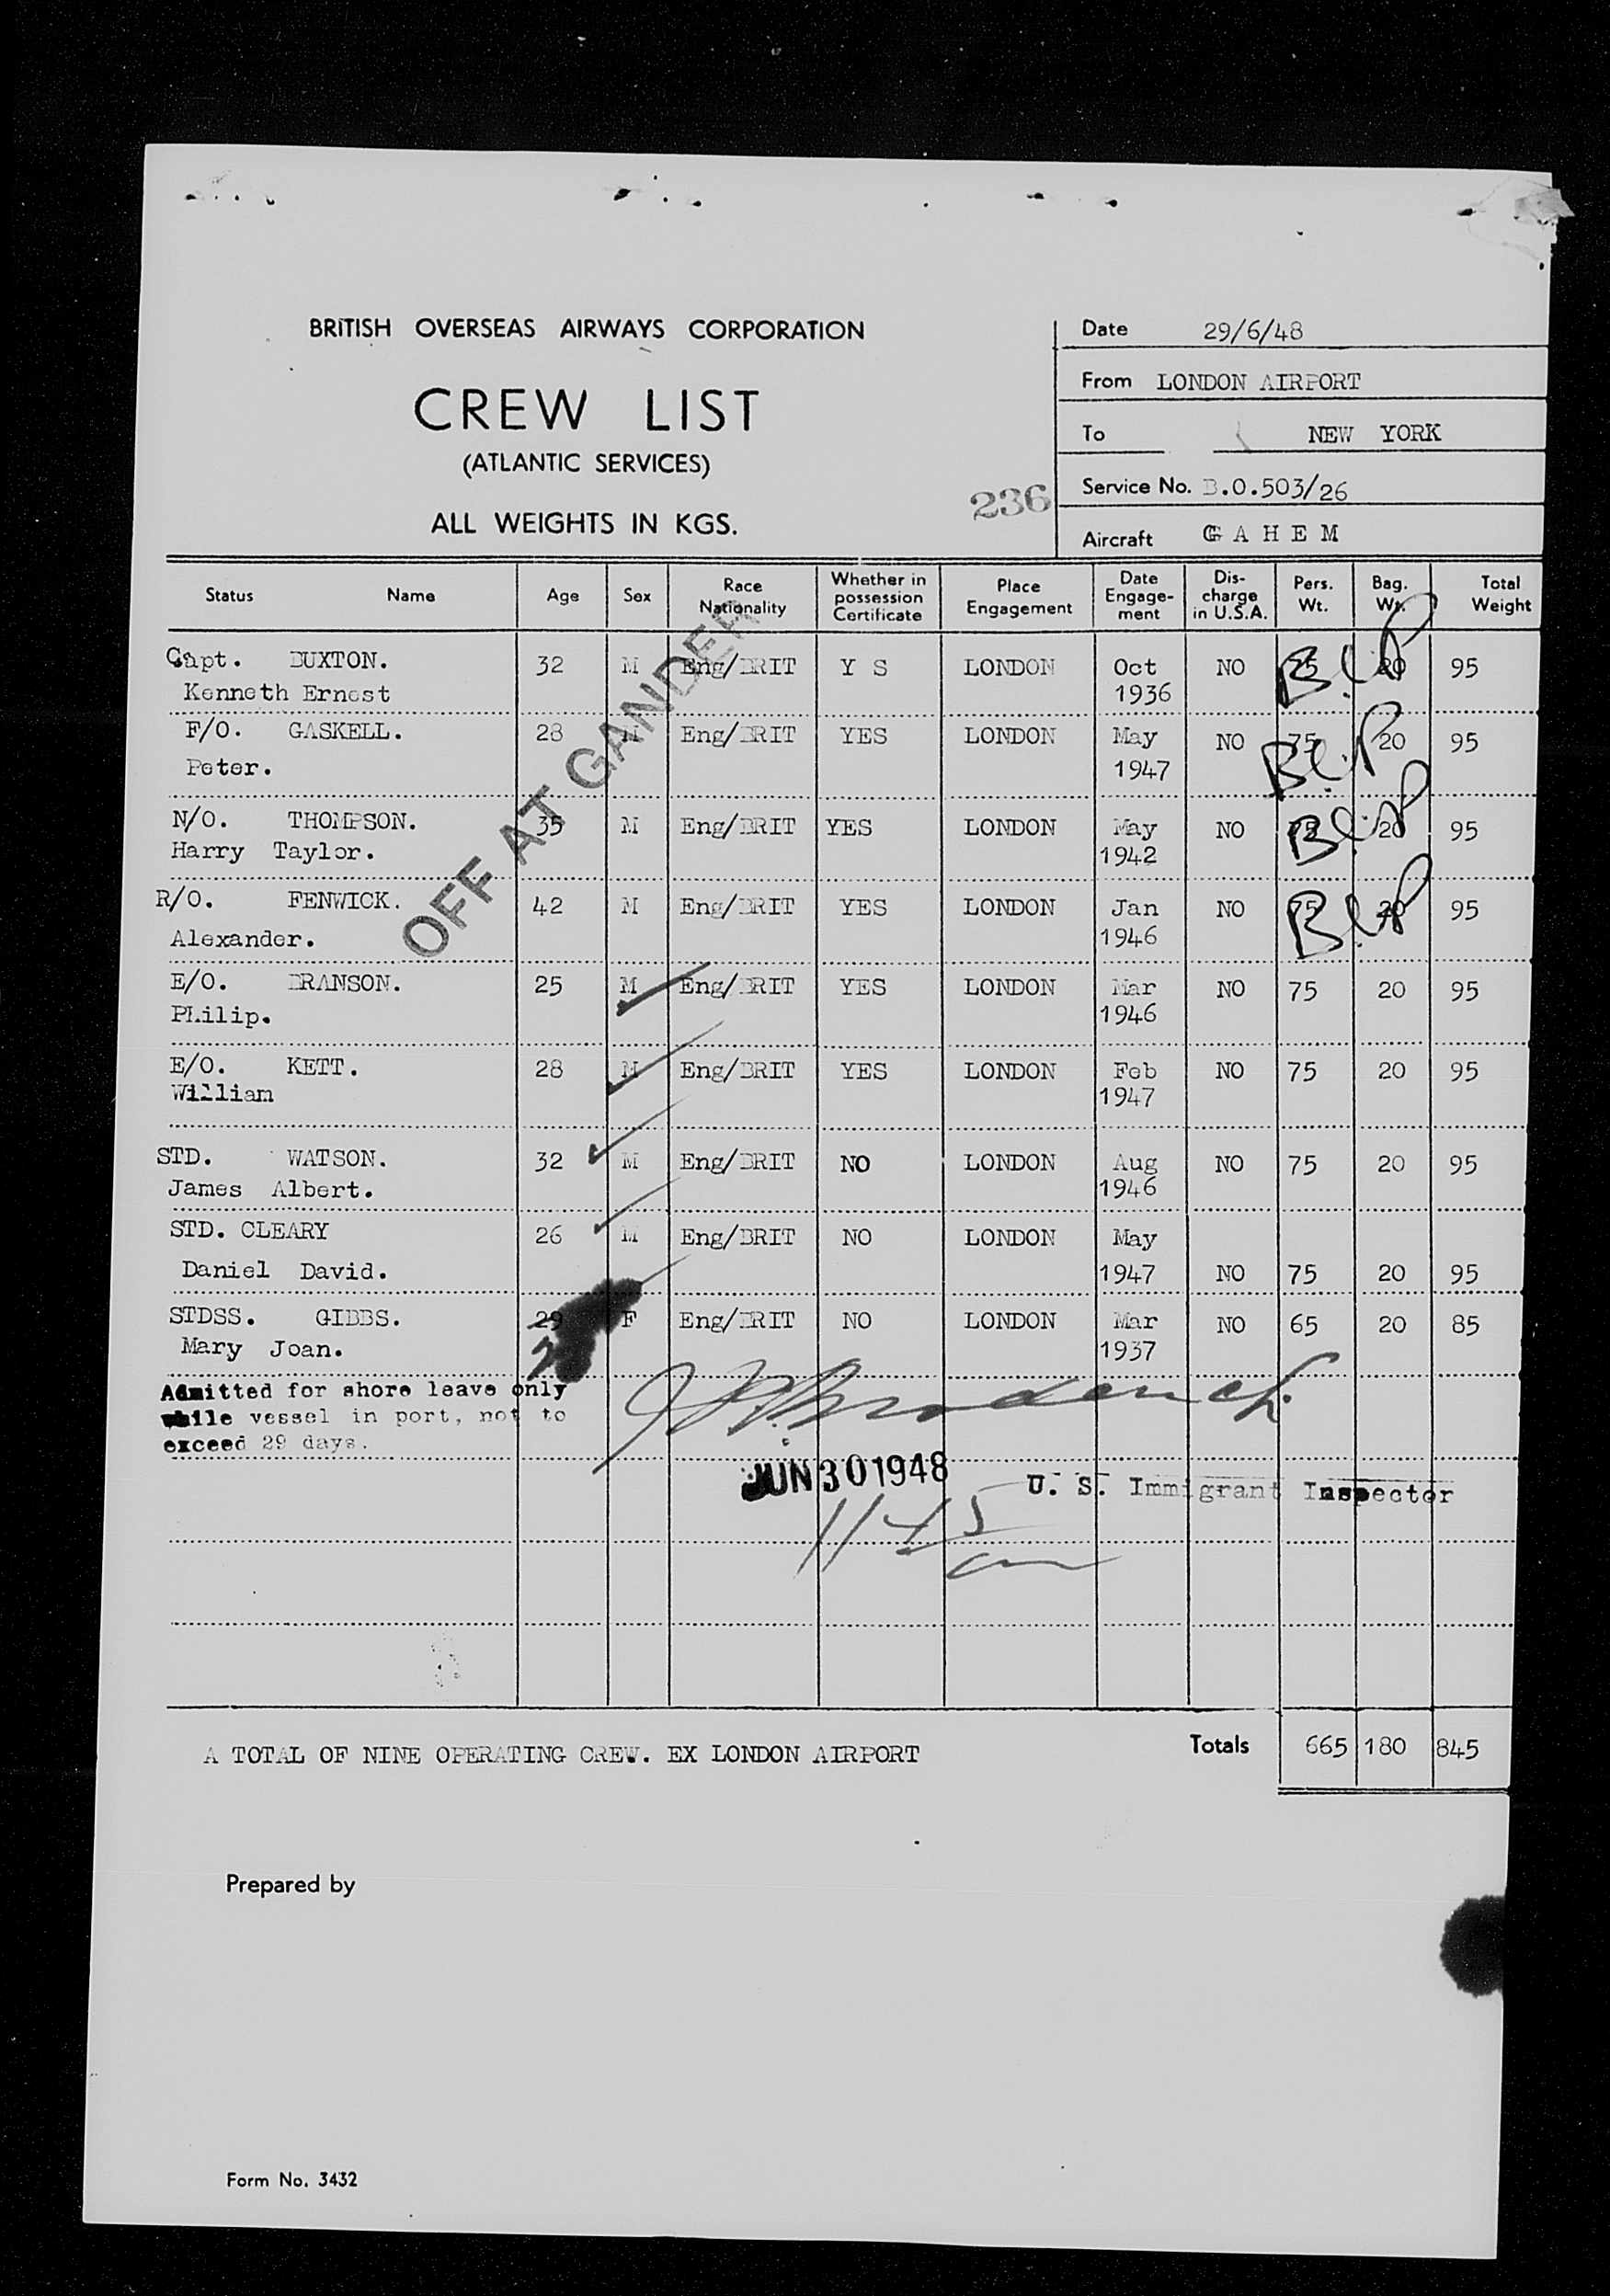 BRITISH OVERSEAS AIRWAYS CORPORATION
CREW LIST
(ATLANTIC SERVICES)
ALL WEIGHTS IN KGS.
236
Date 29/6/48
From LONDON AIRPORT
To NEW YORK
Service No. B.O.503/26
Aircraft G A H E M
Status Name Age Sex Race Nationality Whether in possession Certificate Place Engagement Date Engage-ment Dis-charge in U.S.A. Pers. Wt. Bag. Wt. Total Weight
Capt. BUXTON. 32 M Eng/BRIT Y S LONDON Oct NO 75 20 95
Kenneth Ernest 1936
F/O. GASKELL. 28 Eng/BRIT YES LONDON May NO 75 20 95
Peter. 1947
N/O. THOMPSON. 35 M Eng/BRIT YES LONDON May NO 75 20 95
Harry Taylor. 1942
R/O. FENWICK. 42 M Eng/BRIT YES LONDON Jan NO 75 20 95
Alexander. 1946
OFF AT GANDER
E/O. BRANSON. 25 M Eng/BRIT YES LONDON Mar NO 75 20 95
PHilip. 1946
E/O. KETT. 28 M Eng/BRIT YES LONDON Feb NO 75 20 95
William 1947
STD. WATSON. 32 M Eng/BRIT NO LONDON Aug NO 75 20 95
James Albert. 1946
STD. CLEARY 26 M Eng/BRIT NO LONDON May
Daniel David. 1947 NO 75 20 95
STDSS. GIBBS. 29 F Eng/BRIT NO LONDON Mar NO 65 20 85
Mary Joan. 1937
Admitted for shore leave only
while vessel in port, not to
exceed 29 days.
JUN 30 1948
U. S. Immigrant Inspector
11 45
am
A TOTAL OF NINE OPERATING CREW. EX LONDON AIRPORT Totals 665 180 845
Prepared by
Form No. 3432